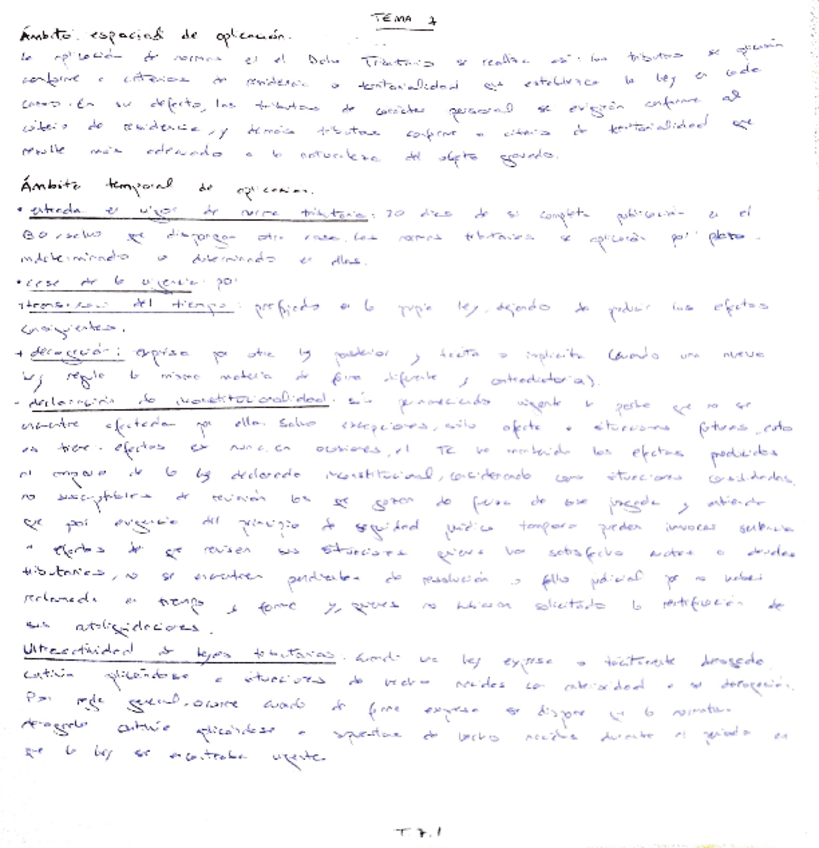 TEMA 7
Ámbito espacial de aplicación.
La aplicación de normas en el Dcho Tributario se realiza así: los tributos se aplicarán
conforme a criterios de residencia o territorialidad que establezca la ley en cada
caso. En su defecto, los tributos de carácter personal se exigirán conforme al
criterio de residencia, y demás tributos conforme a criterio de territorialidad que
resulte más adecuado a la naturaleza del objeto gravado.
Ámbito temporal de aplicación.
• entrada en vigor de norma tributaria: 20 días de su completa publicación en el
BO salvo que dispongan otra cosa. Las normas tributarias se aplicarán por plazo
indeterminado o determinado en ellas.
• cese de la vigencia por
del tiempo: prefijado en la propia ley, dejando de producir los efectos
consiguientes.
+ derogación: expresa por otra ley posterior y tácita o implícita (cuando una nueva
ley regule la misma materia de forma diferente y contradictoria).
- declaración de inconstitucionalidad: permaneciendo vigente la parte que no se
encuentre afectada por ella. Salvo excepciones, sólo afecta a situaciones futuras, esto
es tiene efectos ex nunc, en ocasiones, el TC ha mantenido los efectos producidos
al amparo de la ley declarada inconstitucional, considerando como situaciones consolidadas,
no susceptibles de revisión las que gozan de fuerza de cosa juzgada y
que por exigencia del principio de seguridad jurídica tampoco pueden invocar sentencia
a efectos de que revisen sus situaciones quienes han satisfecho deudas
tributarias, no se encuentren pendientes de resolución o fallo judicial por no haber
reclamado en tiempo y forma y, quienes no hubieran solicitado la rectificación de
sus autoliquidaciones.
Ultraactividad de leyes tributarias: cuando una ley expresa o tácitamente derogada
continúa aplicándose a situaciones de hecho nacidas con anterioridad a su derogación.
Por regla general, ocurre cuando de forma expresa se dispone que la normativa
derogada continúe aplicándose a supuestos de hecho nacidos durante el período en
que la ley se encontraba vigente.
T 7.1